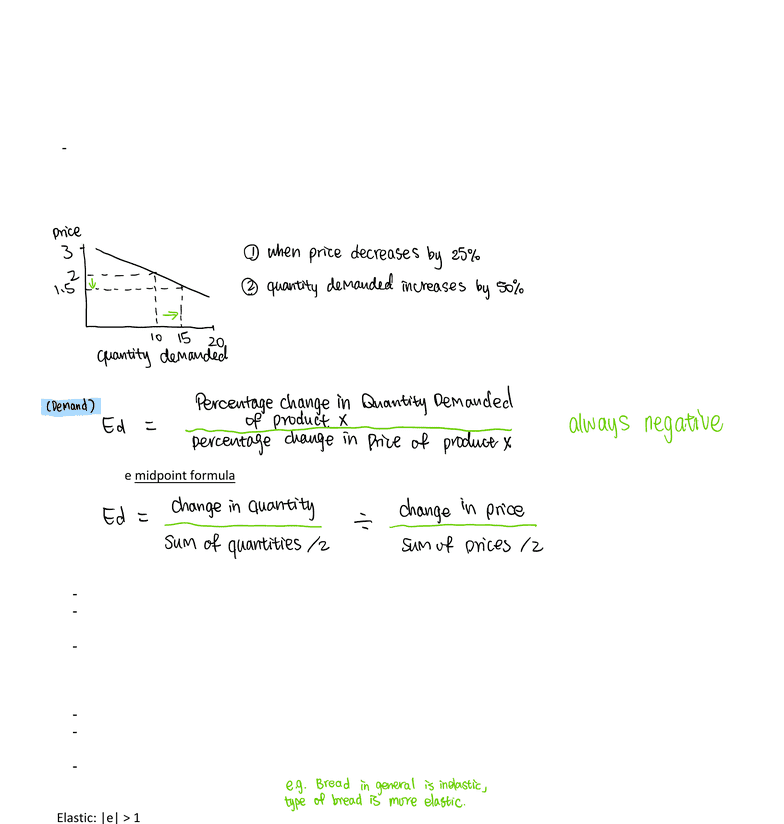 -
price
3
① when price decreases by 25%
2
② quantity demanded increases by 50%
1.5
10 15 20
quantity demanded
(Demand)
Percentage change in Quantity Demanded
of product X
Ed =
percentage change in Price of product X
always negative
e midpoint formula
Ed = change in quantity ÷ change in price
sum of quantities /2 sum of prices /2
-
-
-
-
-
-
e.g. Bread in general is inelastic,
type of bread is more elastic.
Elastic: |e| > 1